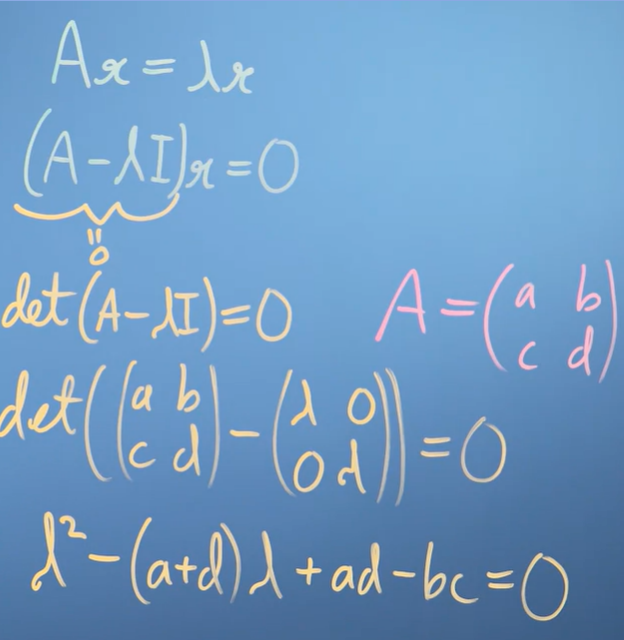 Ax = λx
(A-λI)x = 0
"0
det(A-λI) = 0
A = (a b
c d)
det((a b
c d) - (λ 0
0 λ)) = 0
λ² - (a+d)λ + ad - bc = 0